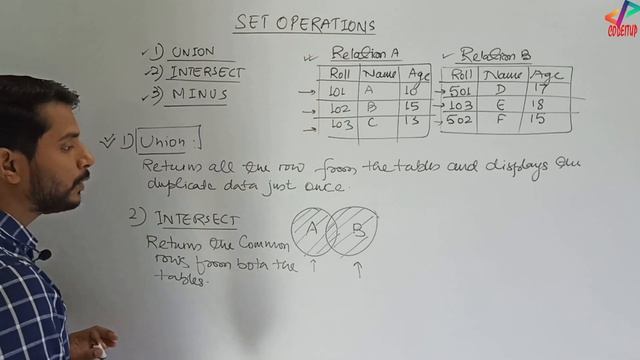 SET OPERATIONS
CODEITUP
1) UNION
2) INTERSECT
3) MINUS
Relation A
Roll Name Age
101 A 10
102 B 15
103 C 13
Relation B
Roll Name Age
501 D 17
103 E 18
502 F 15
1) Union:
Returns all the row from the tables and displays the
duplicate data just once.
2) INTERSECT
Returns the Common
rows from both the
tables.
A B